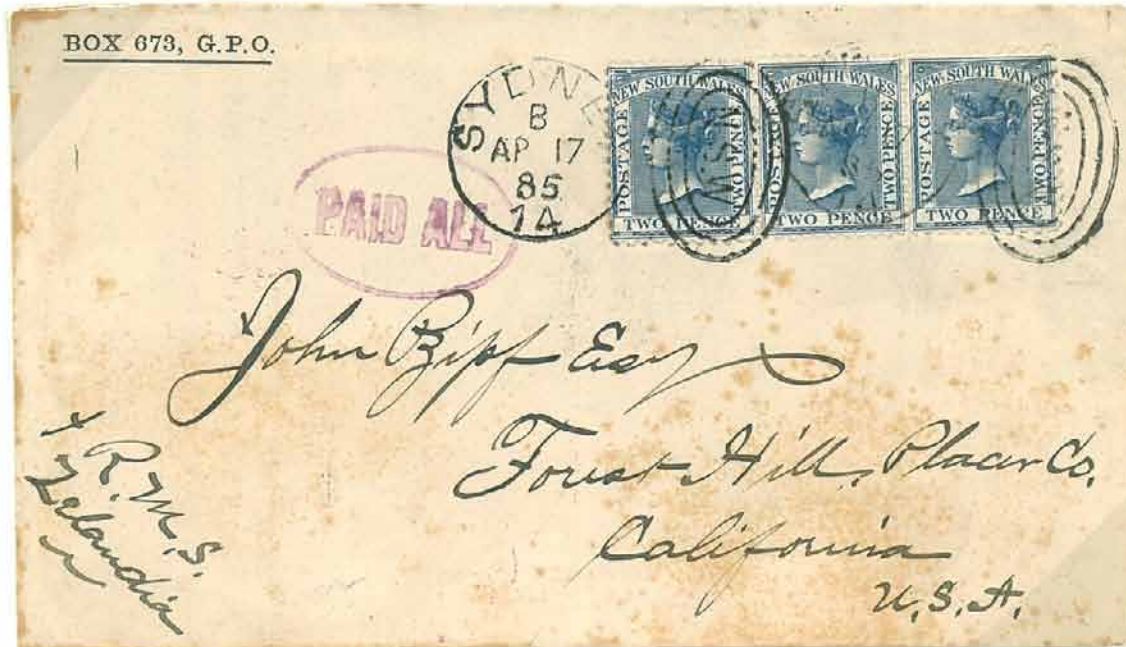 BOX 673, G.P.O.
SYDNE
B
AP 17
85
14
PAID ALL
NEW SOUTH WALES
POSTAGE
TWO PENCE
TWO PENCE
NSW
NEW SOUTH WALES
POSTAGE
TWO PENCE
TWO PENCE
NEW SOUTH WALES
POSTAGE
TWO PENCE
TWO PENCE
John Zipf Esq
Forest Hill, Placer Co.
California
U.S.A.
R.M.S.
Zelandia